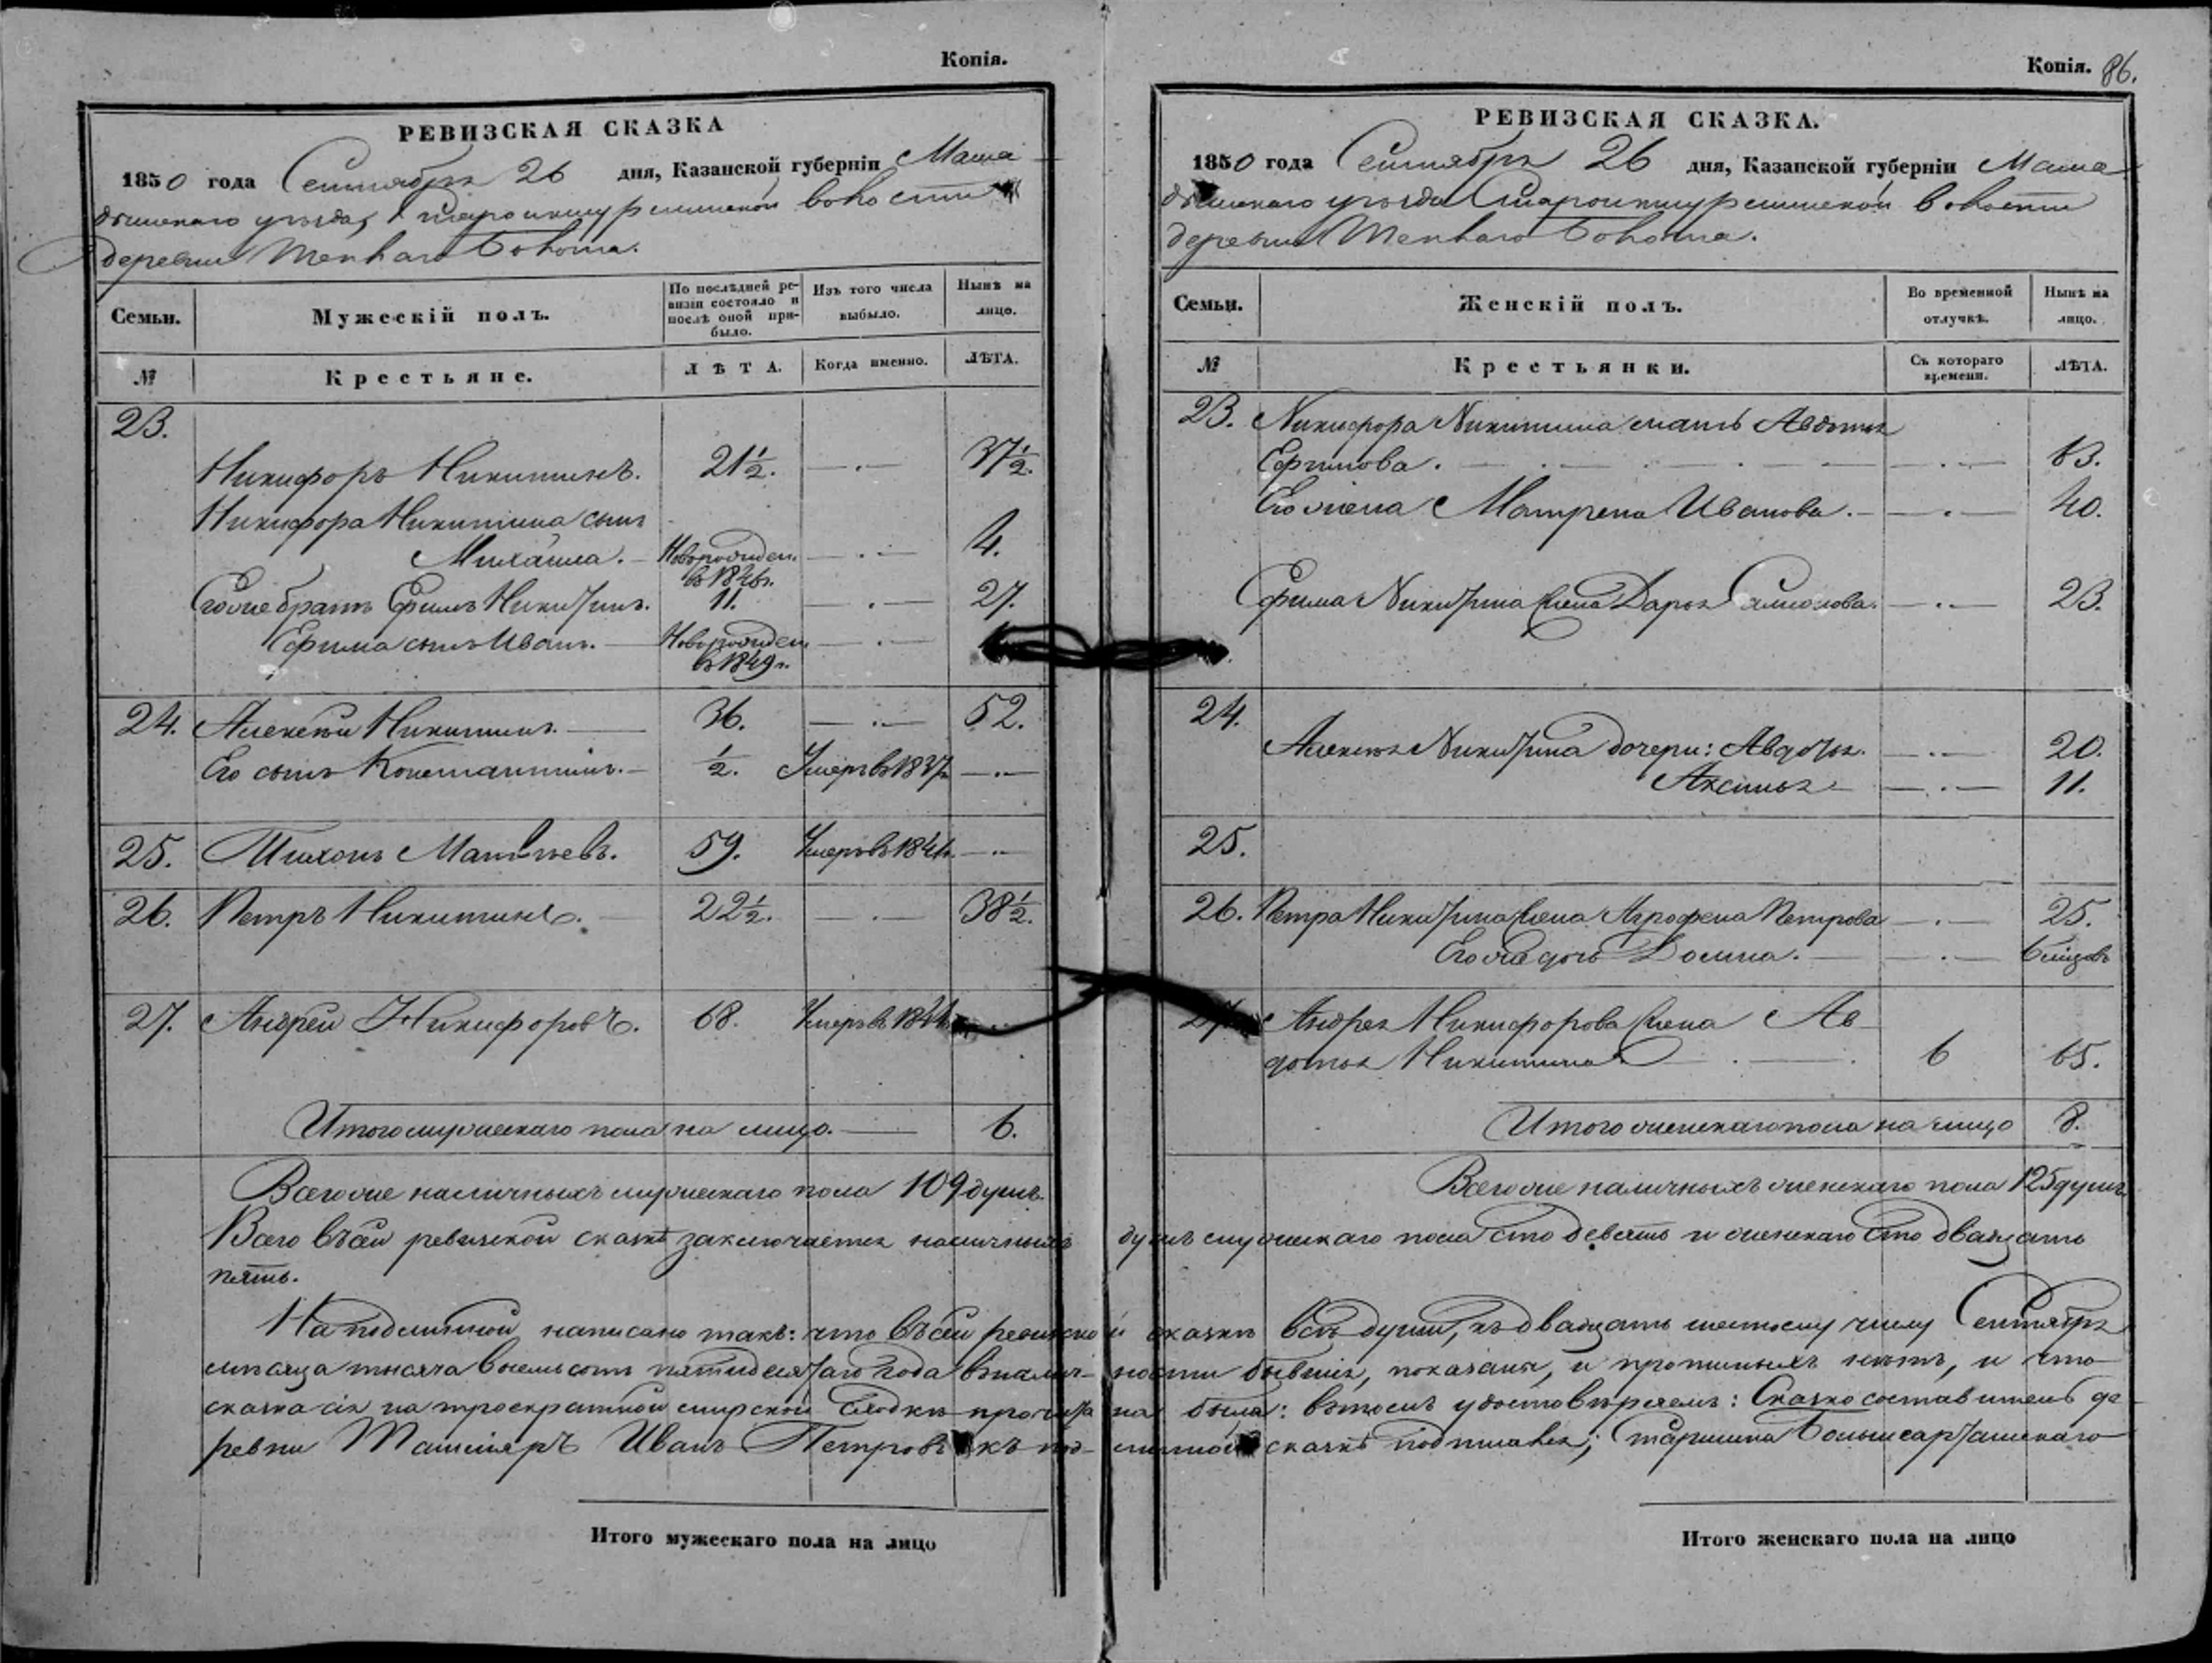 Копія.
РЕВИЗСКАЯ СКАЗКА
1850 года Сентября 26 дня, Казанской губерніи Мама
дышскаго уѣзда, волости
деревни Теплаго Болота.
Семьи.
Мужескій полъ.
По послѣдней ре-
визіи состояло и
послѣ оной при-
было.
Изъ того числа
выбыло.
Нынѣ на
лицо.
№
Крестьяне.
ЛѢТА.
Когда именно.
ЛѢТА.
23.
Никифоръ Никитинъ. 21½. 37½.
Никифора Никитина сынъ
Михаила. Новорожден. 4.
въ 1846г.
Его же братъ Ефимъ Никитинъ. 11. 27.
Ефима сынъ Иванъ. Новорожден.
въ 1849г.
24. Алексѣй Никитинъ. 36. 52.
Его сынъ Константинъ. ½. Умеръ въ 1837г.
25. Тихонъ Матвѣевъ. 59. Умеръ въ
26. Петръ Никитинъ. 22½. 38½.
27. Андрей Никифоровъ. 68. Умеръ въ
Итого мужескаго пола на лицо. 6.
Всего же наличныхъ мужескаго пола 109 душъ.
Всего въ сей ревизской сказкѣ заключается наличныхъ
пять.
На подлинной написано такъ: что въ сей ревизско
мѣсяца тысяча восемьсотъ пятидесятаго года въ налич-
сказка сія на троекратной мирской сходкѣ прочита
ревни Ташліяръ Иванъ Петровъ къ под-
Итого мужескаго пола на лицо
Копія. 86.
РЕВИЗСКАЯ СКАЗКА.
1850 года Сентября 26 дня, Казанской губерніи Мама
дышскаго уѣзда волости
деревни Теплаго Болота.
Семьи.
Женскій полъ.
Во временной
отлучкѣ.
Нынѣ на
лицо.
№
Крестьянки.
Съ котораго
времени.
ЛѢТА.
23. Никифора Никитина мать Авдотья
Ефимова. 63.
Его жена Матрена Иванова. 40.
Ефима Никитина жена Дарья 23.
24.
Алексѣя Никитина дочери: Авдотья. 20.
Аксинья 11.
25.
26. Петра Никитина жена Агрофена Петрова 25.
Его же дочь Домна. 6 мѣсяцовъ
27. Андрея Никифорова жена Ав
дотья Никитина 6 65.
Итого женскаго пола на лицо 8.
Всего же наличныхъ женскаго пола 125 душъ.
душъ мужескаго пола сто девять и женскаго сто двадцать
й сказкѣ всѣ души, къ двадцать шестому числу Сентября
ности бывшія, показаны, и прописныхъ нѣтъ, и что
на была: въ томъ удостовѣряемъ: Сказкосоставитель де
линной сказкѣ подписался; старшина
Итого женскаго пола на лицо